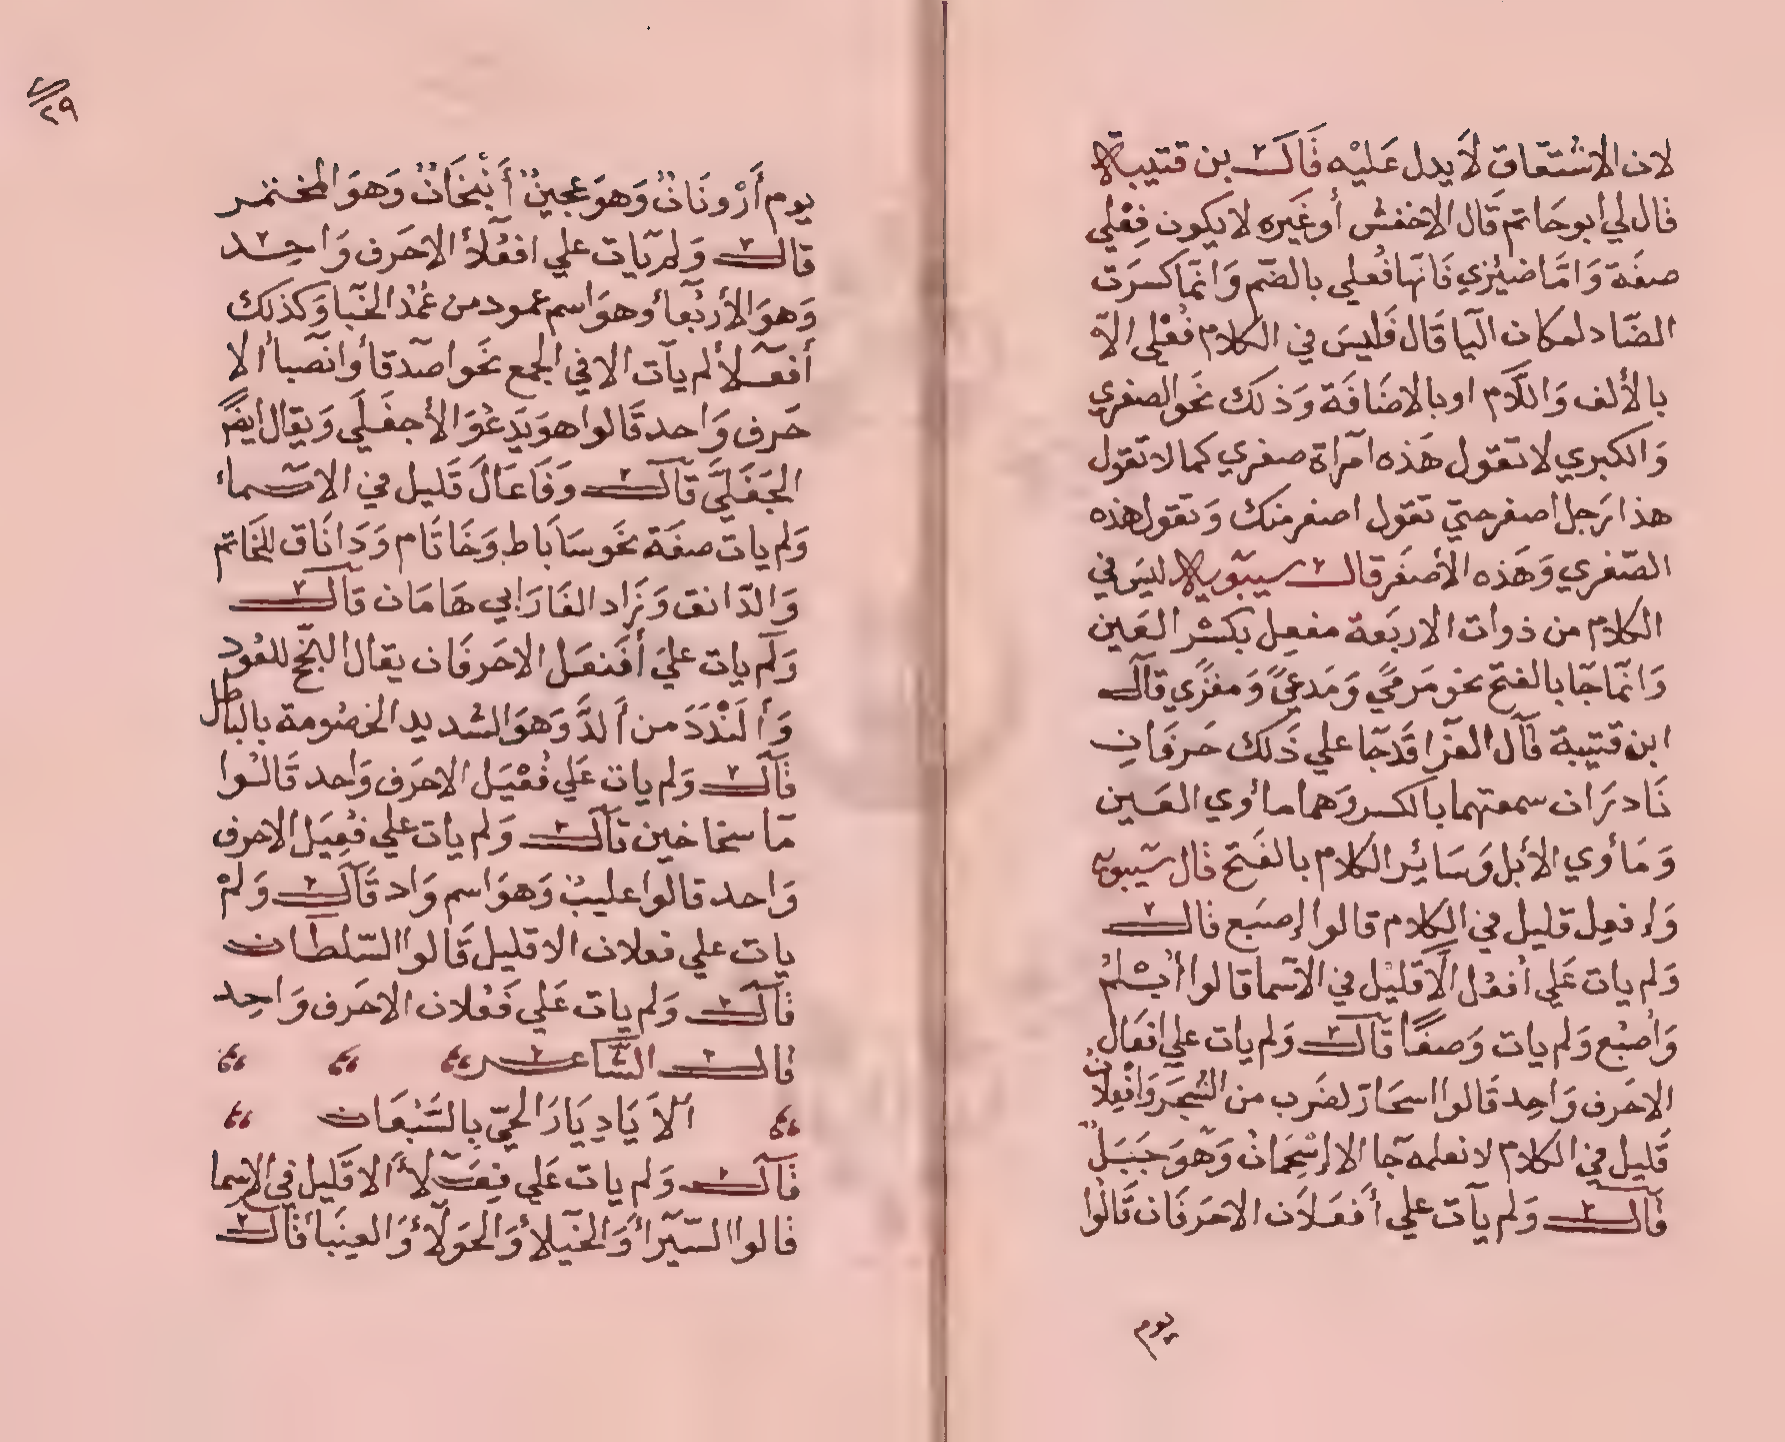 لان الاشتقاق لا يدل عليه قال بن قتيبة
قال لي ابو حاتم قال الاخفش أو غيره لا يكون فِعْلي
صفة وَامّا ضيْزي فَانها فُعلي بالضم وَانما كسرَت
الضاد لمكان اليا قال فليسَ في الكلام فُعْلى الا
بالألف وَاللام او بالاضَافة وَذلك نحو الصغري
وَالكبري لا تقول هَذه امرَاة صغري كما لا تقول
هذا رَجل اصغر حتي تقول اصغر منك وَتقول هذه
الصّغري وَهَذه الأصغَر قال سيبَويه ليسَ في
الكلام من ذوات الاربَعة مفعِل بكسْر العَين
وَانما جَا بالفتح نحو مَرميً وَمَدعيً وَمغزًي قال
ابن قتيبة قال الفرّا قَد جَا علي ذَلك حَرفَانِ
نَادرَان سمعتهما بالكسر وَهما مأوي العَين
وَمَأوي الأبل وَسَائِر الكلام بالفَتح قال سيبويه
وَإفعِل قليل في الكلام قالوا إصبَع قال
وَلم يات عَلي اُفعُل الا قليْل في الاسما قالوا اُبْلُمُ
وَاُصْبُع وَلم يات وَصفًا قَال وَلم يات علي افعَال
الا حَرف وَاحِد قَالوا اسحَارّ لضَرب من الشجَر وَافْعِلانٌ
قَليل في الكلام لا نعلمه جَا الا إسْحِمَانٌ وَهوَ جَبَلٌ
قَال وَلم يَأت علي أَفعَلاَن الا حَرفَان قَالُوا
يوم
٢٩
يوم أَرْوَنَانٌ وَهوَ عجينٌ أَنْبَخَانٌ وَهوَ المختمر
قال وَلم يَات علي افعُلاَء الا حَرف وَاحِد
وَهوَ الأرْبُعَاء وَهوَ اسم عمود من عُمُد الخبَا وَكذلك
أفعِلاء لم يَأت الا في الجمع نَحو اصدقاء وَانصبَاء الا
حَرف وَاحد قَالوا هوَ يَدعُوَ الأجفَلَي وَيقال ايضًا
الجَفَلَي قَال وَفَاعَالَ قَليل في الاسماء
وَلم يات صفَة نحَو سَابَاط وَخَاتَام وَدَانَاق للخَاتم
وَالدّانق وَزَاد الفَارَابي هَامَان قَال
وَلَم يات عليَ أَفَنعَل الا حَرفَان يقال النَجّج للعُود
وَأَلَنْدَدَ من أَلدَّ وَهوَ الشديد الخصُومة بالباطل
قَال وَلم يات عَلي فُعْيَل الا حَرف وَاحد قَالُوا
مَا سخاخين قَال وَلم يات علي فُعِيَل الا حرف
وَاحد قالوا عليبٌ وَهوَ اسم وَاد قَال وَلمْ
يات علي فعلان الا قليل قَالوا السّلطان
قَال وَلم يات عَلي فَعُلان الا حَرف وَاحِد
قال الشاعر
اَلاَ يَا دِيَارَ الحَيِّ بِالسَّبُعَان
قَال وَلم يات عَلي فِعَلاَء الا قَليل في الاسما
قالوا السّيَرَاء وَالخيَلاء وَالحَولاء وَالعِنَبَاء قَال